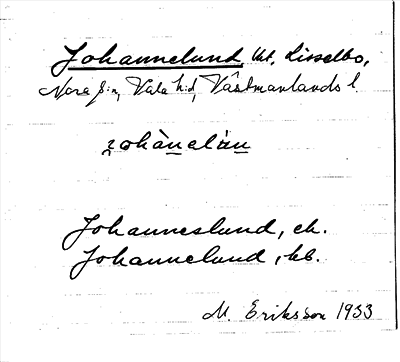 Johannelund, kt, Lisselbo,
Nora s:n, Våla h:d, Västmanlands l.
Johanneslund, ek.
Johannelund, kb.
M. Eriksson 1933